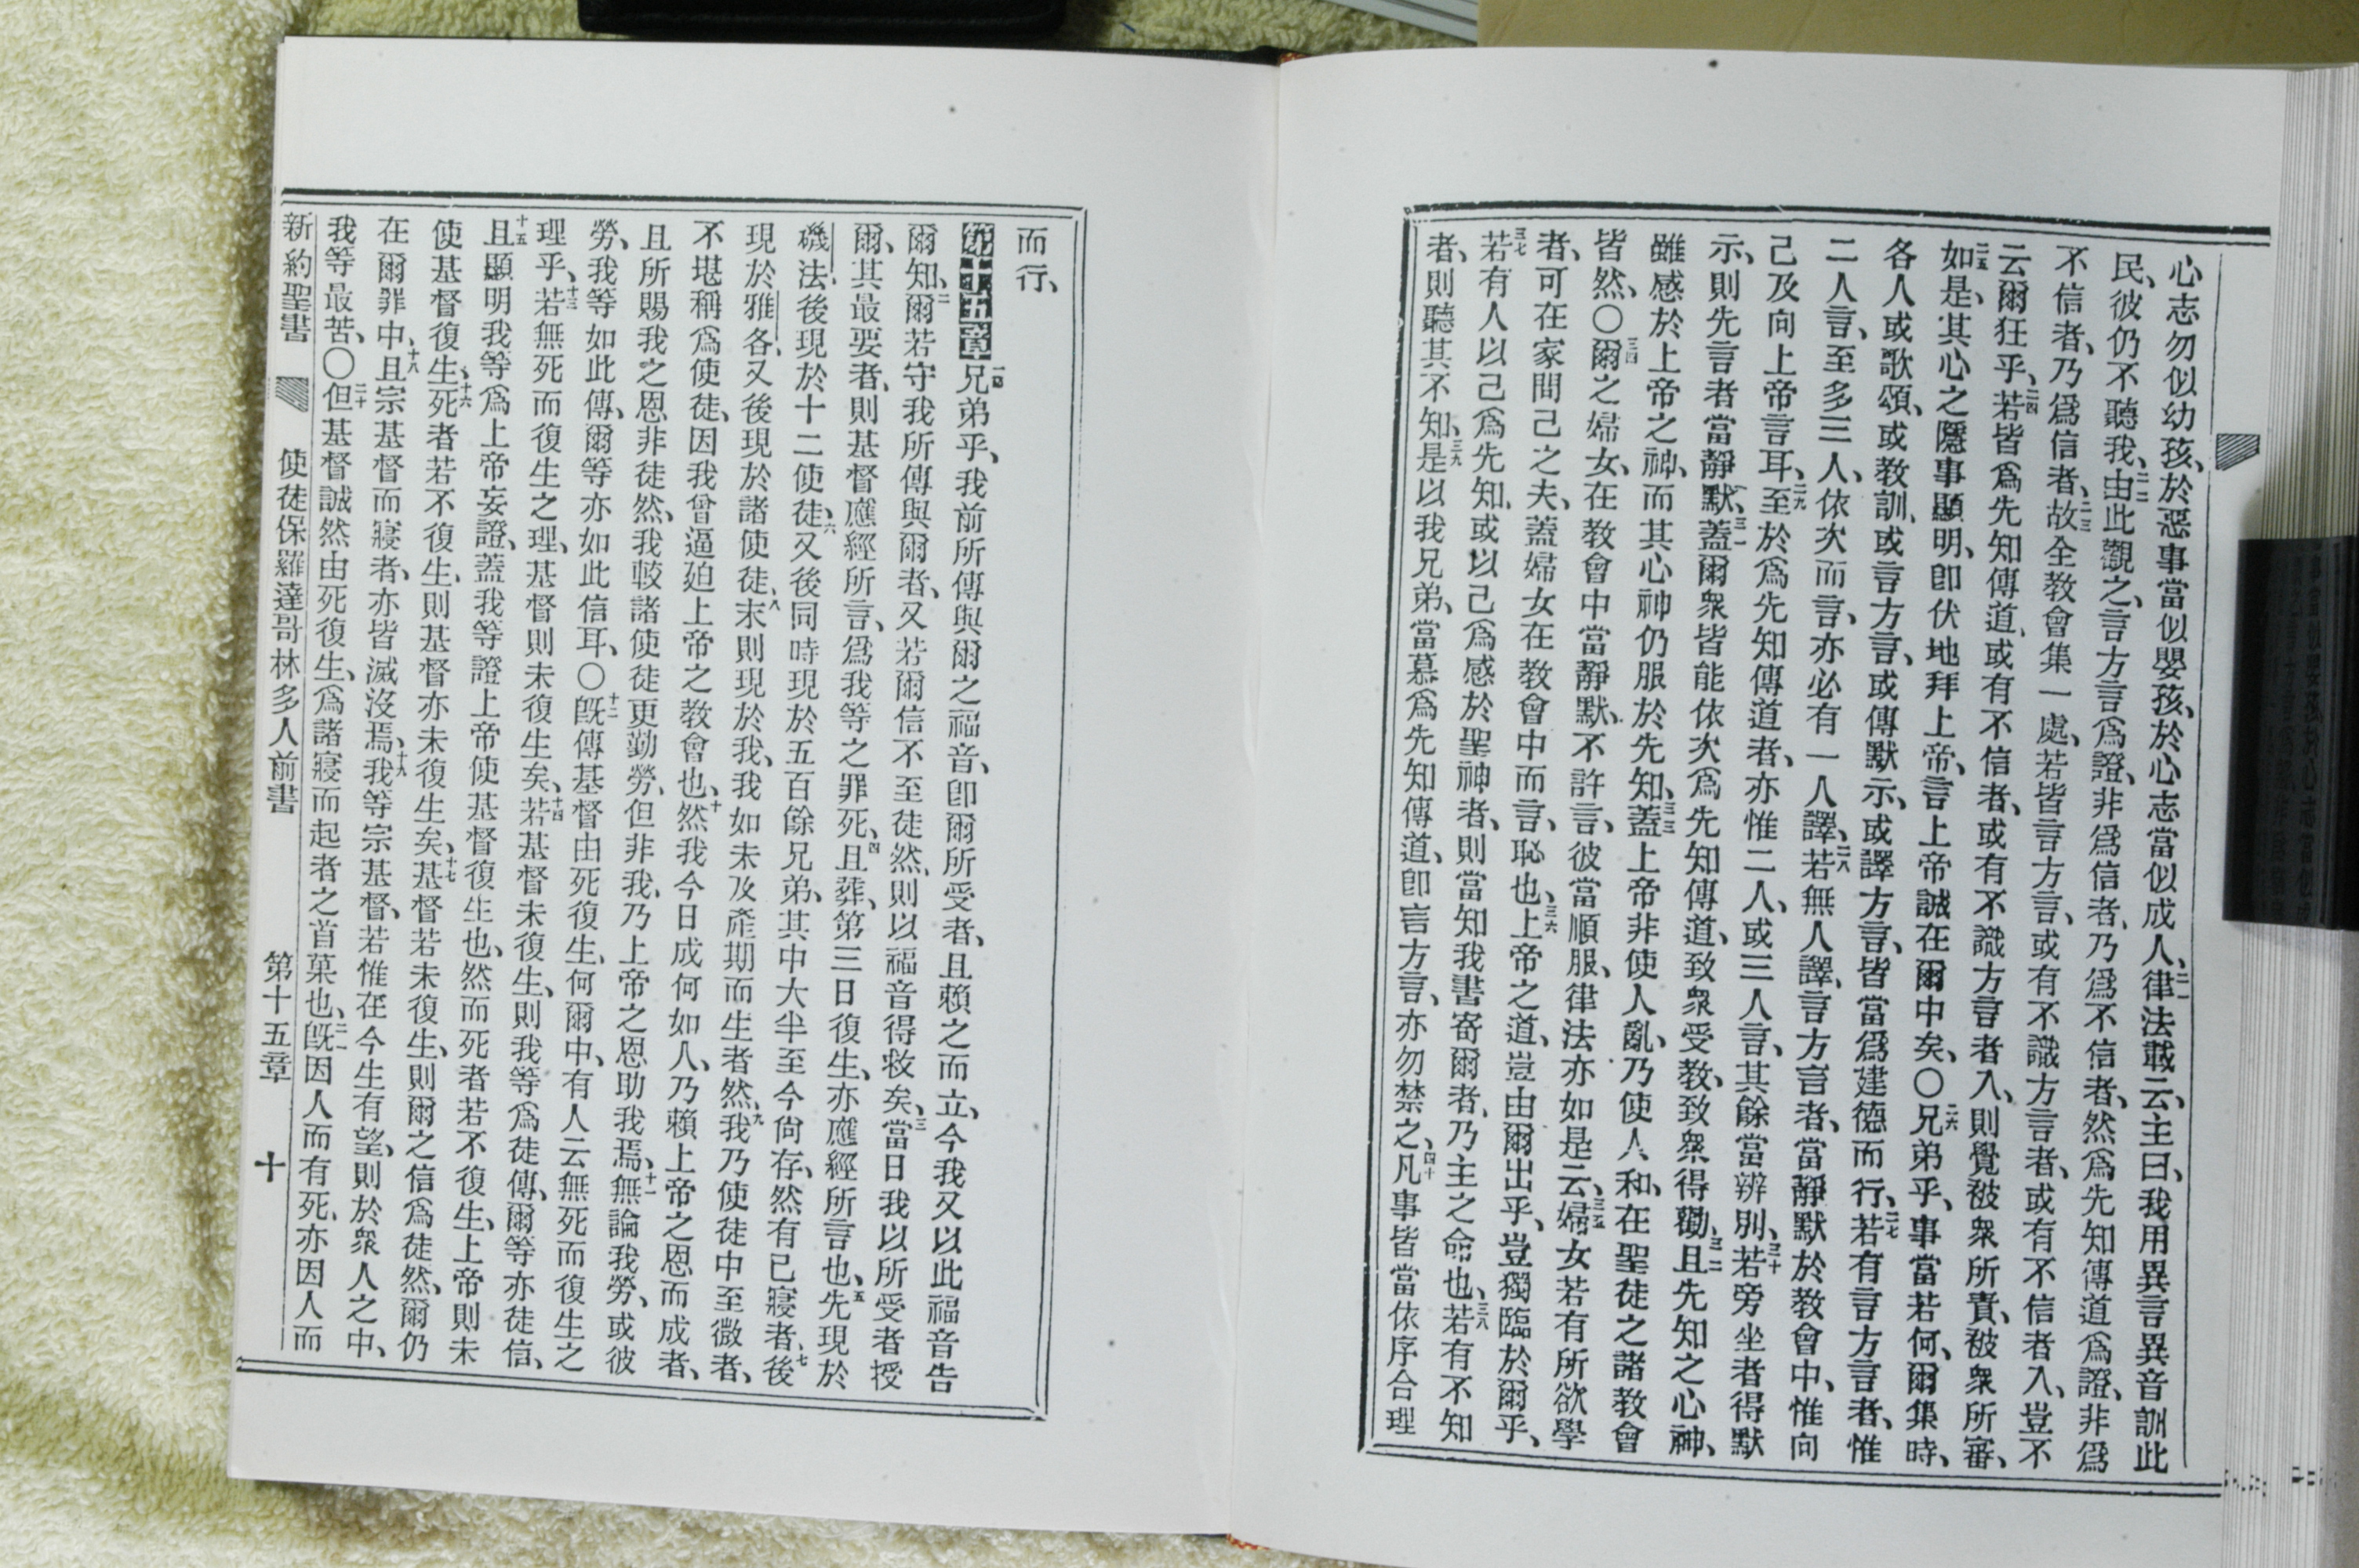 心志勿似幼孩、於惡事當似嬰孩、於心志當似成人、二一律法載云、主曰、我用異言異音訓此
民、彼仍不聽我、二二由此觀之、言方言爲證、非爲信者、乃爲不信者、然爲先知傳道爲證、非爲
不信者、乃爲信者、二三故全教會集一處、若皆言方言、或有不識方言者、或有不信者入、豈不
云爾狂乎、二四若皆爲先知傳道、或有不信者、或有不識方言者入、則覺被衆所責、被衆所審、
二五如是、其心之隱事顯明、卽伏地拜上帝、言上帝誠在爾中矣、〇二六兄弟乎、事當若何、爾集時、
各人或歌頌、或教訓、或言方言、或傳默示、或譯方言、皆當爲建德而行、二七若有言方言者、惟
二人言、至多三人、依次而言、亦必有一人譯、二八若無人譯、言方言者、當靜默於教會中、惟向
己及向上帝言耳、二九至於爲先知傳道者、亦惟二人、或三人言、其餘當辨別、三十若旁坐者得默
示、則先言者當靜默、三一蓋爾衆皆能依次爲先知傳道、致衆受教、致衆得勸、三二且先知之心神、
雖感於上帝之神、而其心神仍服於先知、三三蓋上帝非使人亂、乃使人和、在聖徒之諸教會
皆然、〇三四爾之婦女、在教會中當靜默、不許言、彼當順服、律法亦如是云、三五婦女若有所欲學
者、可在家問己之夫、蓋婦女在教會中而言、恥也、三六上帝之道、豈由爾出乎、豈獨臨於爾乎、
三七若有人以己爲先知、或以己爲感於聖神者、則當知我書寄爾者、乃主之命也、三八若有不知
者、則聽其不知、三九是以我兄弟、當慕爲先知傳道、卽言方言、亦勿禁之、四十凡事皆當依序合理
而行、
第十五章一兄弟乎、我前所傳與爾之福音、卽爾所受者、且賴之而立、今我又以此福音告
爾知、二爾若守我所傳與爾者、又若爾信不至徒然、則以福音得救矣、三當日我以所受者授
爾、其最要者、則基督應經所言、爲我等之罪死、四且葬、第三日復生、亦應經所言也、五先現於
磯法、後現於十二使徒、六又後同時現於五百餘兄弟、其中大半至今尙存、然有已寢者、七後
現於雅各、又後現於諸使徒、八末則現於我、我如未及產期而生者然、九我乃使徒中至微者、
不堪稱爲使徒、因我曾逼廹上帝之教會也、十然我今日成何如人、乃賴上帝之恩而成者、
且所賜我之恩非徒然、我較諸使徒更勤勞、但非我、乃上帝之恩助我焉、十一無論我勞、或彼
勞、我等如此傳、爾等亦如此信耳、〇十二旣傳基督由死復生、何爾中、有人云無死而復生之
理乎、十三若無死而復生之理、基督則未復生矣、十四若基督未復生、則我等爲徒傳、爾等亦徒信、
十五且顯明我等爲上帝妄證、蓋我等證上帝使基督復生也、然而死者若不復生、上帝則未
使基督復生、十六死者若不復生、則基督亦未復生矣、十七基督若未復生、則爾之信爲徒然、爾仍
在爾罪中、十八且宗基督而寢者、亦皆滅沒焉、十九我等宗基督、若惟在今生有望、則於衆人之中、
我等最苦、〇二十但基督誠然由死復生、爲諸寢而起者之首菓也、二一旣因人而有死、亦因人而
新約聖書 使徒保羅達哥林多人前書 第十五章 十